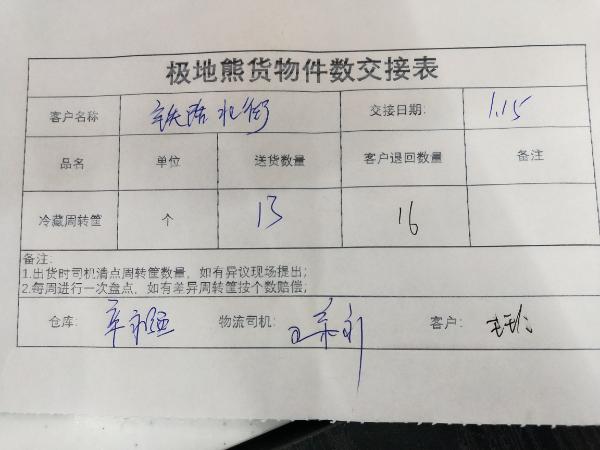 极地熊货物件数交接表
客户名称 铁路北街 交接日期: 1.15
品名 单位 送货数量 客户退回数量 备注
冷藏周转筐 个 13 16
备注:
1.出货时司机清点周转筐数量,如有异议现场提出;
2.每周进行一次盘点,如有差异周转筐按个数赔偿;
仓库: 物流司机: 客户: